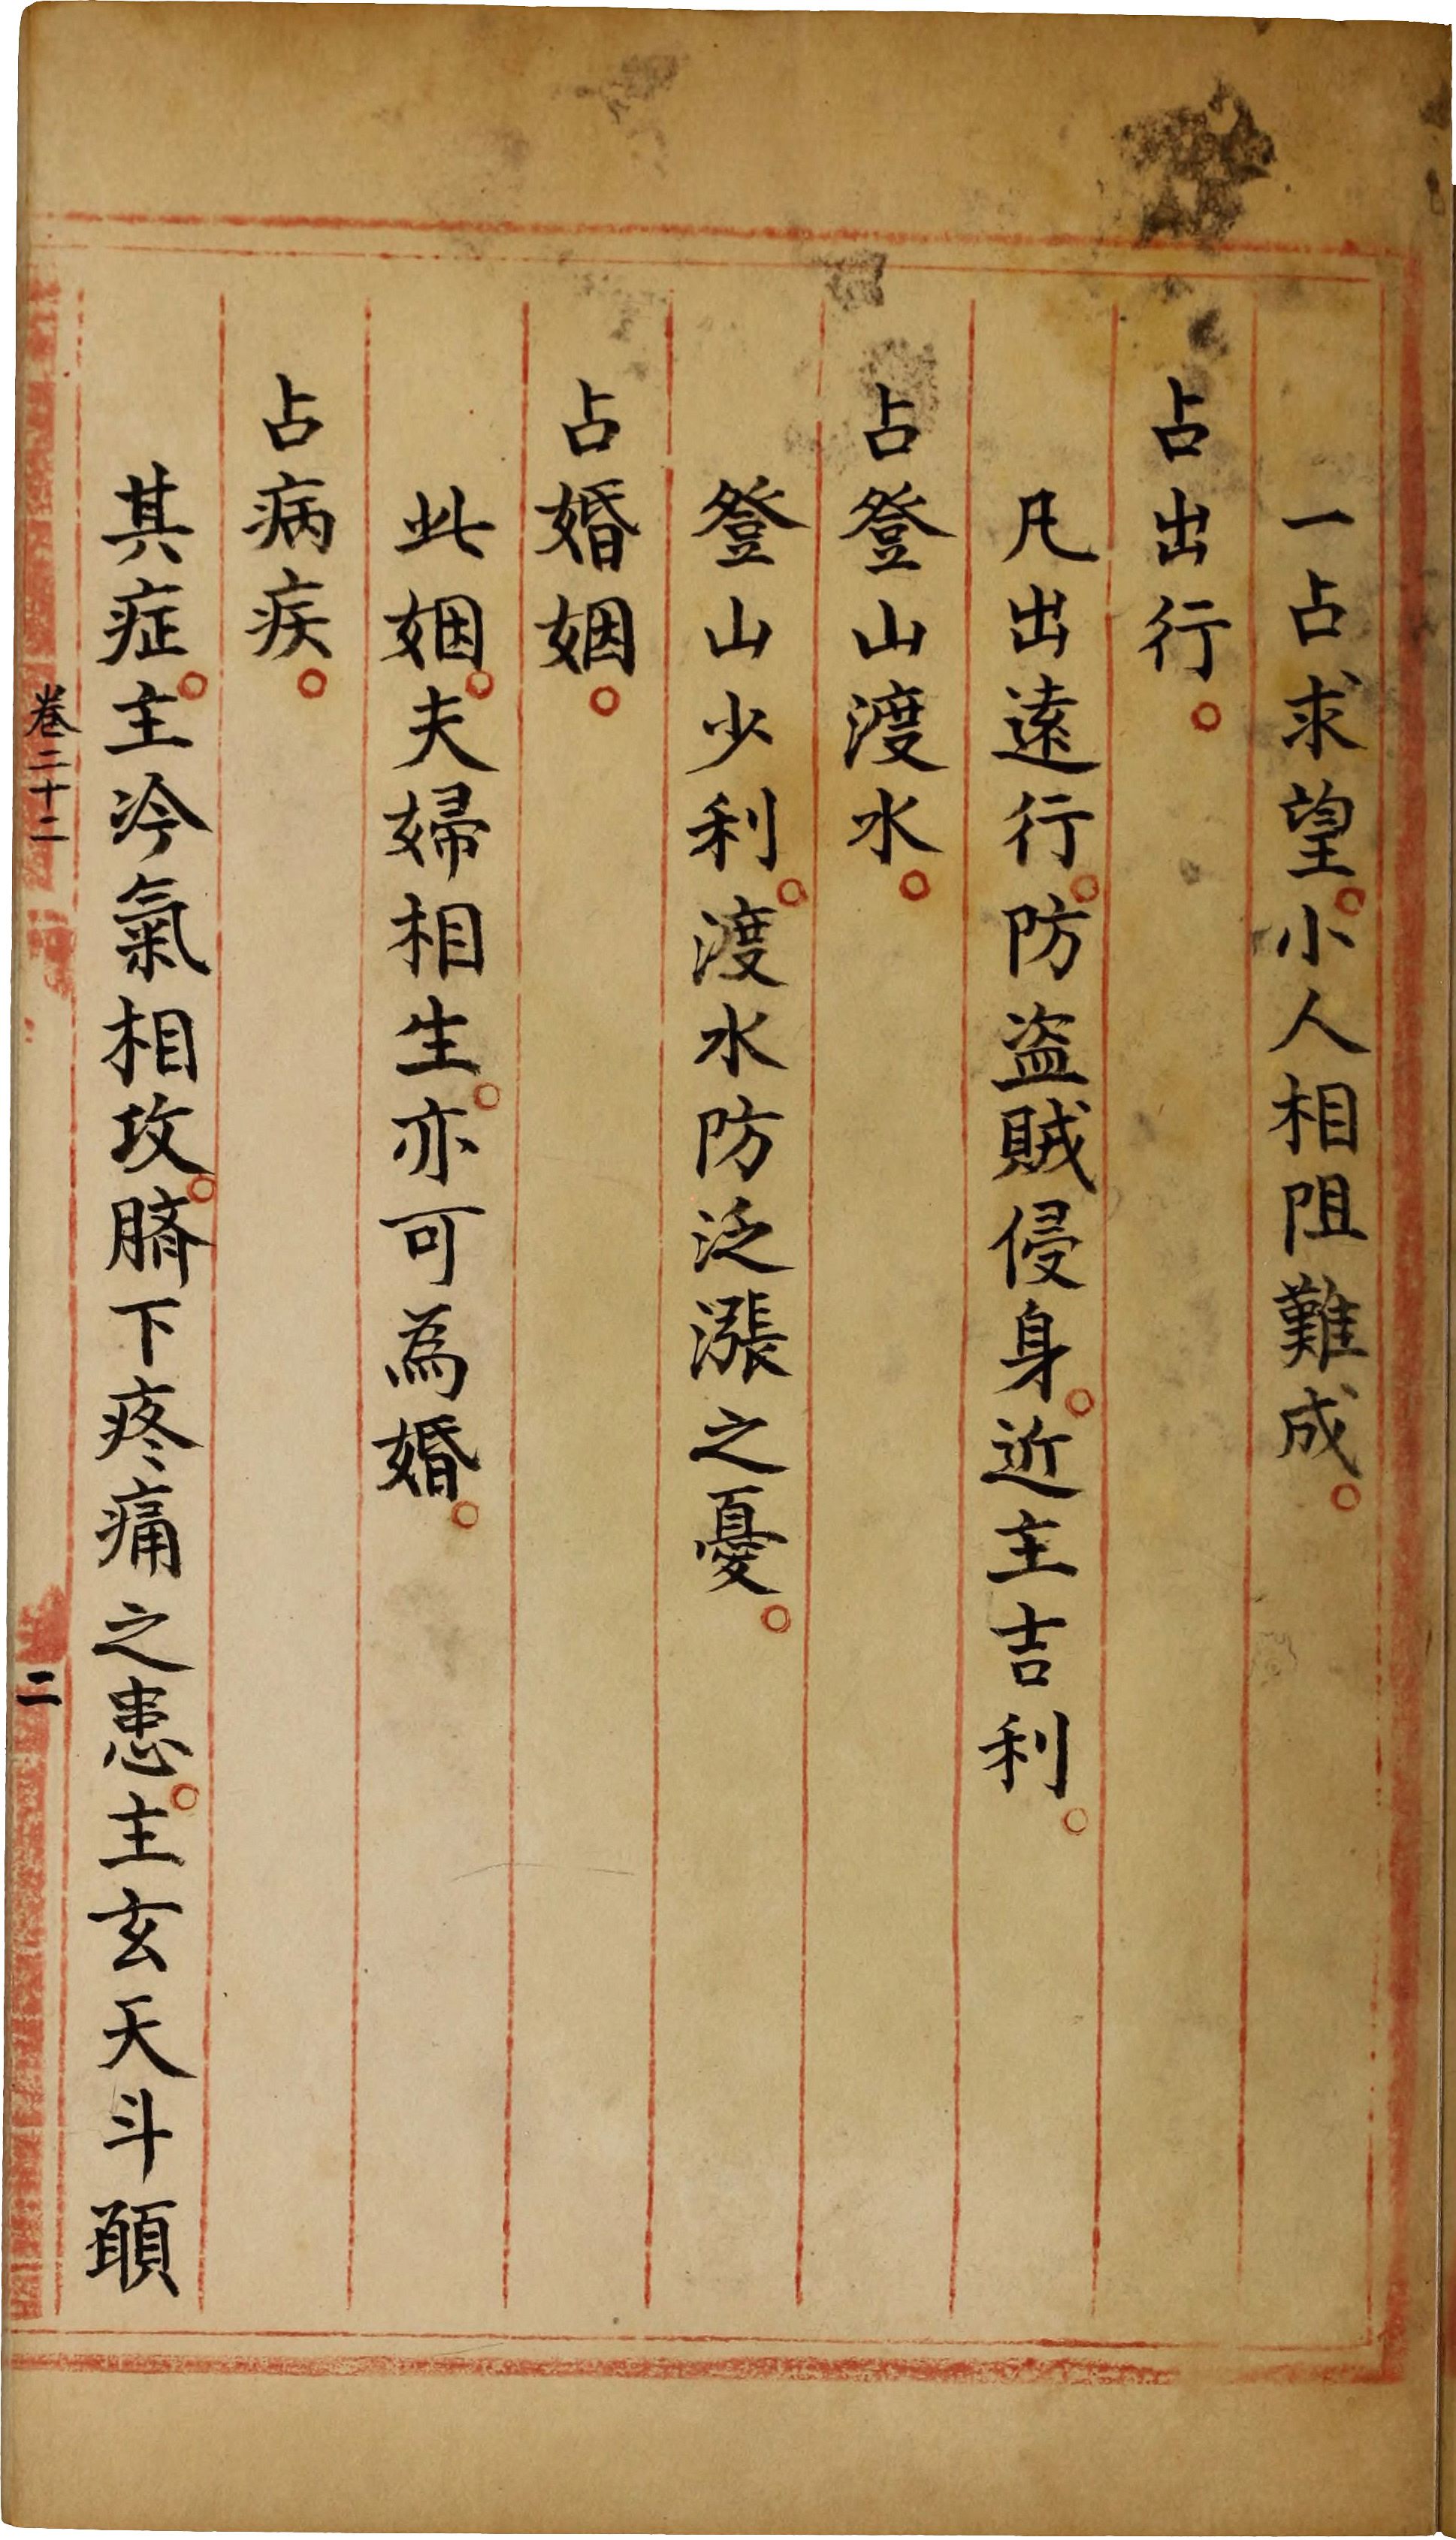 一占求望。小人相阻難成。
占出行。
凡出遠行。防盜賊侵身。近主吉利。
占登山渡水。
登山少利。渡水防泛漲之憂。
占婚姻。
此姻。夫婦相生。亦可為婚。
占病疾。
其症。主冷氣相攻。臍下疼痛之患。主玄天斗願
卷二十二
二